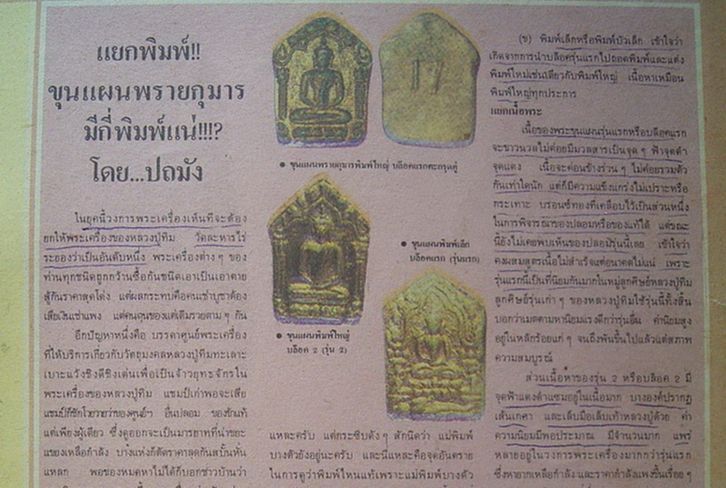 แยกพิมพ์!!
ขุนแผนพรายกุมาร
มีกี่พิมพ์แน่!!!?
โดย...ปถมัง
ในยุคนี้วงการพระเครื่องเห็นทีจะต้อง
ยกให้พระเครื่องของหลวงปู่ทิม วัดละหารไร่
ระยองว่าเป็นอันดับหนึ่ง พระเครื่องต่าง ๆ ของ
ท่านทุกชนิดถูกกว้านซื้อกันชนิดเอาเป็นเอาตาย
สู้กันราคาสุดโต่ง แต่ผลกระทบคือคนเช่าบูชาต้อง
เสียเงินเช่าแพง แต่คนตุนของแต่เดิมรวยตาม ๆ กัน
อีกปัญหาหนึ่งคือ บรรดาศูนย์พระเครื่อง
ที่ให้บริการเกี่ยวกับวัตถุมงคลหลวงปู่ทิมทะเลาะ
เบาะแว้งชิงดีชิงเด่นเพื่อเป็นจ้าวยุทธจักรใน
พระเครื่องของหลวงปู่ทิม แชมป์เก่าพอจะเสีย
แชมป์ก็ชักโวยวายว่าของศูนย์ฯ อื่นปลอม ของฉันแท้
แต่เพียงผู้เดียว ซึ่งดูออกจะเป็นมารยาทที่น่าขยะ
แขยงเหลือกำลัง บางแห่งก็ตัดราคาลูกค้าสะบั้นหั่น
แหลก พอของหมดหาไม่ได้ก็บอกชาวบ้านว่า
17
• ขุนแผนพรายกุมารพิมพ์ใหญ่ บล็อคแรกตะกรุดคู่
• ขุนแผนพิมพ์เล็ก
บล็อคแรก (รุ่นแรก)
• ขุนแผนพิมพ์ใหญ่
บล็อค 2 (รุ่น 2)
แหละครับ แต่กระซิบดัง ๆ สักนิดว่า แม่พิมพ์
บางตัวยังอยู่นะครับ และนี่แหละคือจุดอันตราย
ในการดูว่าพิมพ์ไหนแท้เพราะแม่พิมพ์บางตัว
(ข) พิมพ์เล็กหรือพิมพ์บัวเล็ก เข้าใจว่า
เกิดจากการนำบล็อครุ่นแรกไปถอดพิมพ์และแต่ง
พิมพ์ใหม่เช่นเดียวกับพิมพ์ใหญ่ เนื้อหาเหมือน
พิมพ์ใหญ่ทุกประการ
แยกเนื้อพระ
เนื้อของพระขุนแผนรุ่นแรกหรือบล็อคแรก
จะขาวนวลไม่ค่อยมีมวลสารเป็นจุด ๆ ฟ้าจุดดำ
จุดแดง เนื้อจะค่อนข้างร่วน ๆ ไม่ค่อยรวมตัว
กันเท่าใดนัก แต่ก็มีความแข็งแกร่งไม่เปราะหรือ
กระเทาะ บรอนซ์ทองที่เคลือบไว้เป็นส่วนหนึ่ง
ในการพิจารณาของปลอมหรือของแท้ได้ แต่ขณะ
นี้ยังไม่เคยพบเห็นของปลอมรุ่นนี้เลย เข้าใจว่า
คงผสมสูตรเนื้อไม่สำเร็จแต่อนาคตไม่แน่ เพราะ
รุ่นแรกนี้เป็นที่นิยมกันมากในหมู่ลูกศิษย์หลวงปู่ทิม
ลูกศิษย์รุ่นเก่า ๆ ของหลวงปู่ทิมใช้รุ่นนี้ทั้งสิ้น
บอกว่าเมตตามหานิยมแรงดีกว่ารุ่นอื่น ค่านิยมสูง
อยู่ในหลักร้อยแก่ ๆ จนถึงพันขึ้นไปแล้วแต่สภาพ
ความสมบูรณ์
ส่วนเนื้อหาของรุ่น 2 หรือบล็อค 2 มี
จุดฟ้าแดงดำแซมอยู่ในเนื้อมาก บางองค์ปรากฏ
เส้นเกศา และเล็บมือเล็บเท้าหลวงปู่ด้วย ค่า
ความนิยมมีพอประมาณ มีจำนวนมาก แพร่
หลายอยู่ในวงการพระเครื่องมากกว่ารุ่นแรก
ซึ่งหายากเหลือกำลัง และราคากำลังแพงขึ้นเรื่อย ๆ